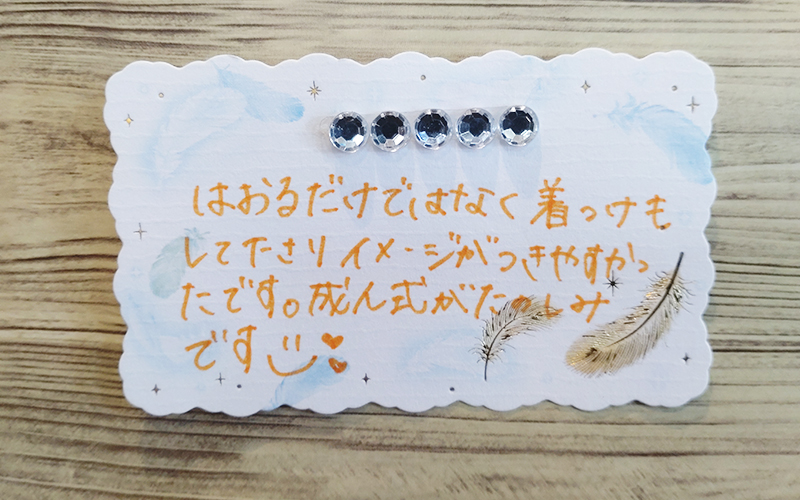 はおるだけではなく着つけも
してたさりイメージがつきやすかっ
たです。成人式がたのしみ
です